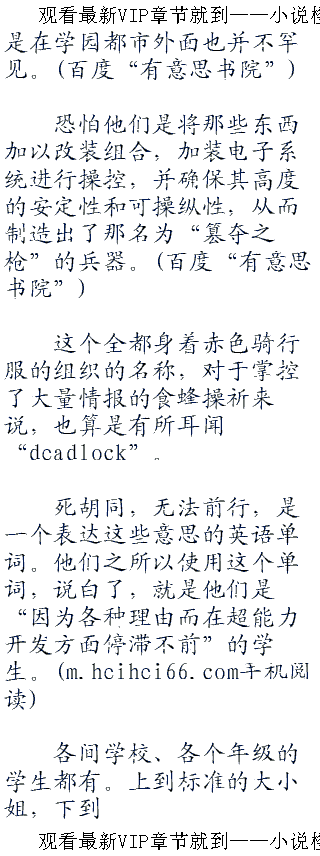 观看最新VIP章节就到——小说
是在学园都市外面也并不罕
见。(百度“有意思书院”)
恐怕他们是将那些东西
加以改装组合，加装电子系
统进行操控，并确保其高度
的安定性和可操纵性，从而
制造出了那名为“篡夺之
枪”的兵器。(百度“有意思
书院”)
这个全都身着赤色骑行
服的组织的名称，对于掌控
了大量情报的食蜂操祈来
说，也算是有所耳闻
“dcadlock”。
死胡同，无法前行，是
一个表达这些意思的英语单
词。他们之所以使用这个单
词，说白了，就是他们是
“因为各种理由而在超能力
开发方面停滞不前”的学
生。(m.hcihci66.com手机阅
读)
各间学校、各个年级的
学生都有。上到标准的大小
姐，下到
观看最新VIP章节就到——小说